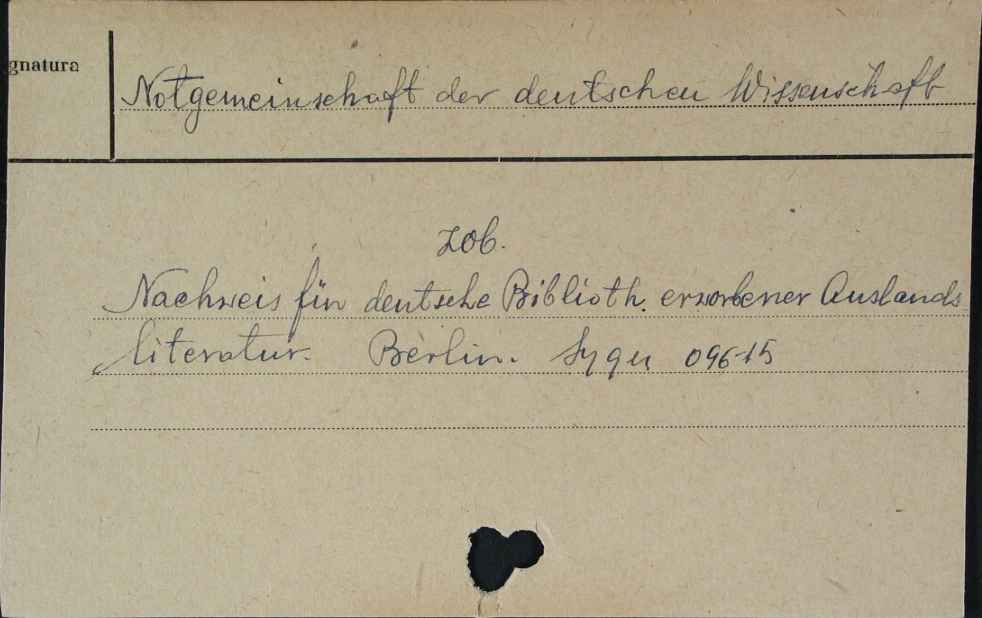 gnatura
Notgemeinschaft der deutschen Wissenschaft
zob.
Nachweis für deutsche Biblioth. erworbener Auslands-
literatur. Berlin. Sygn 096-15